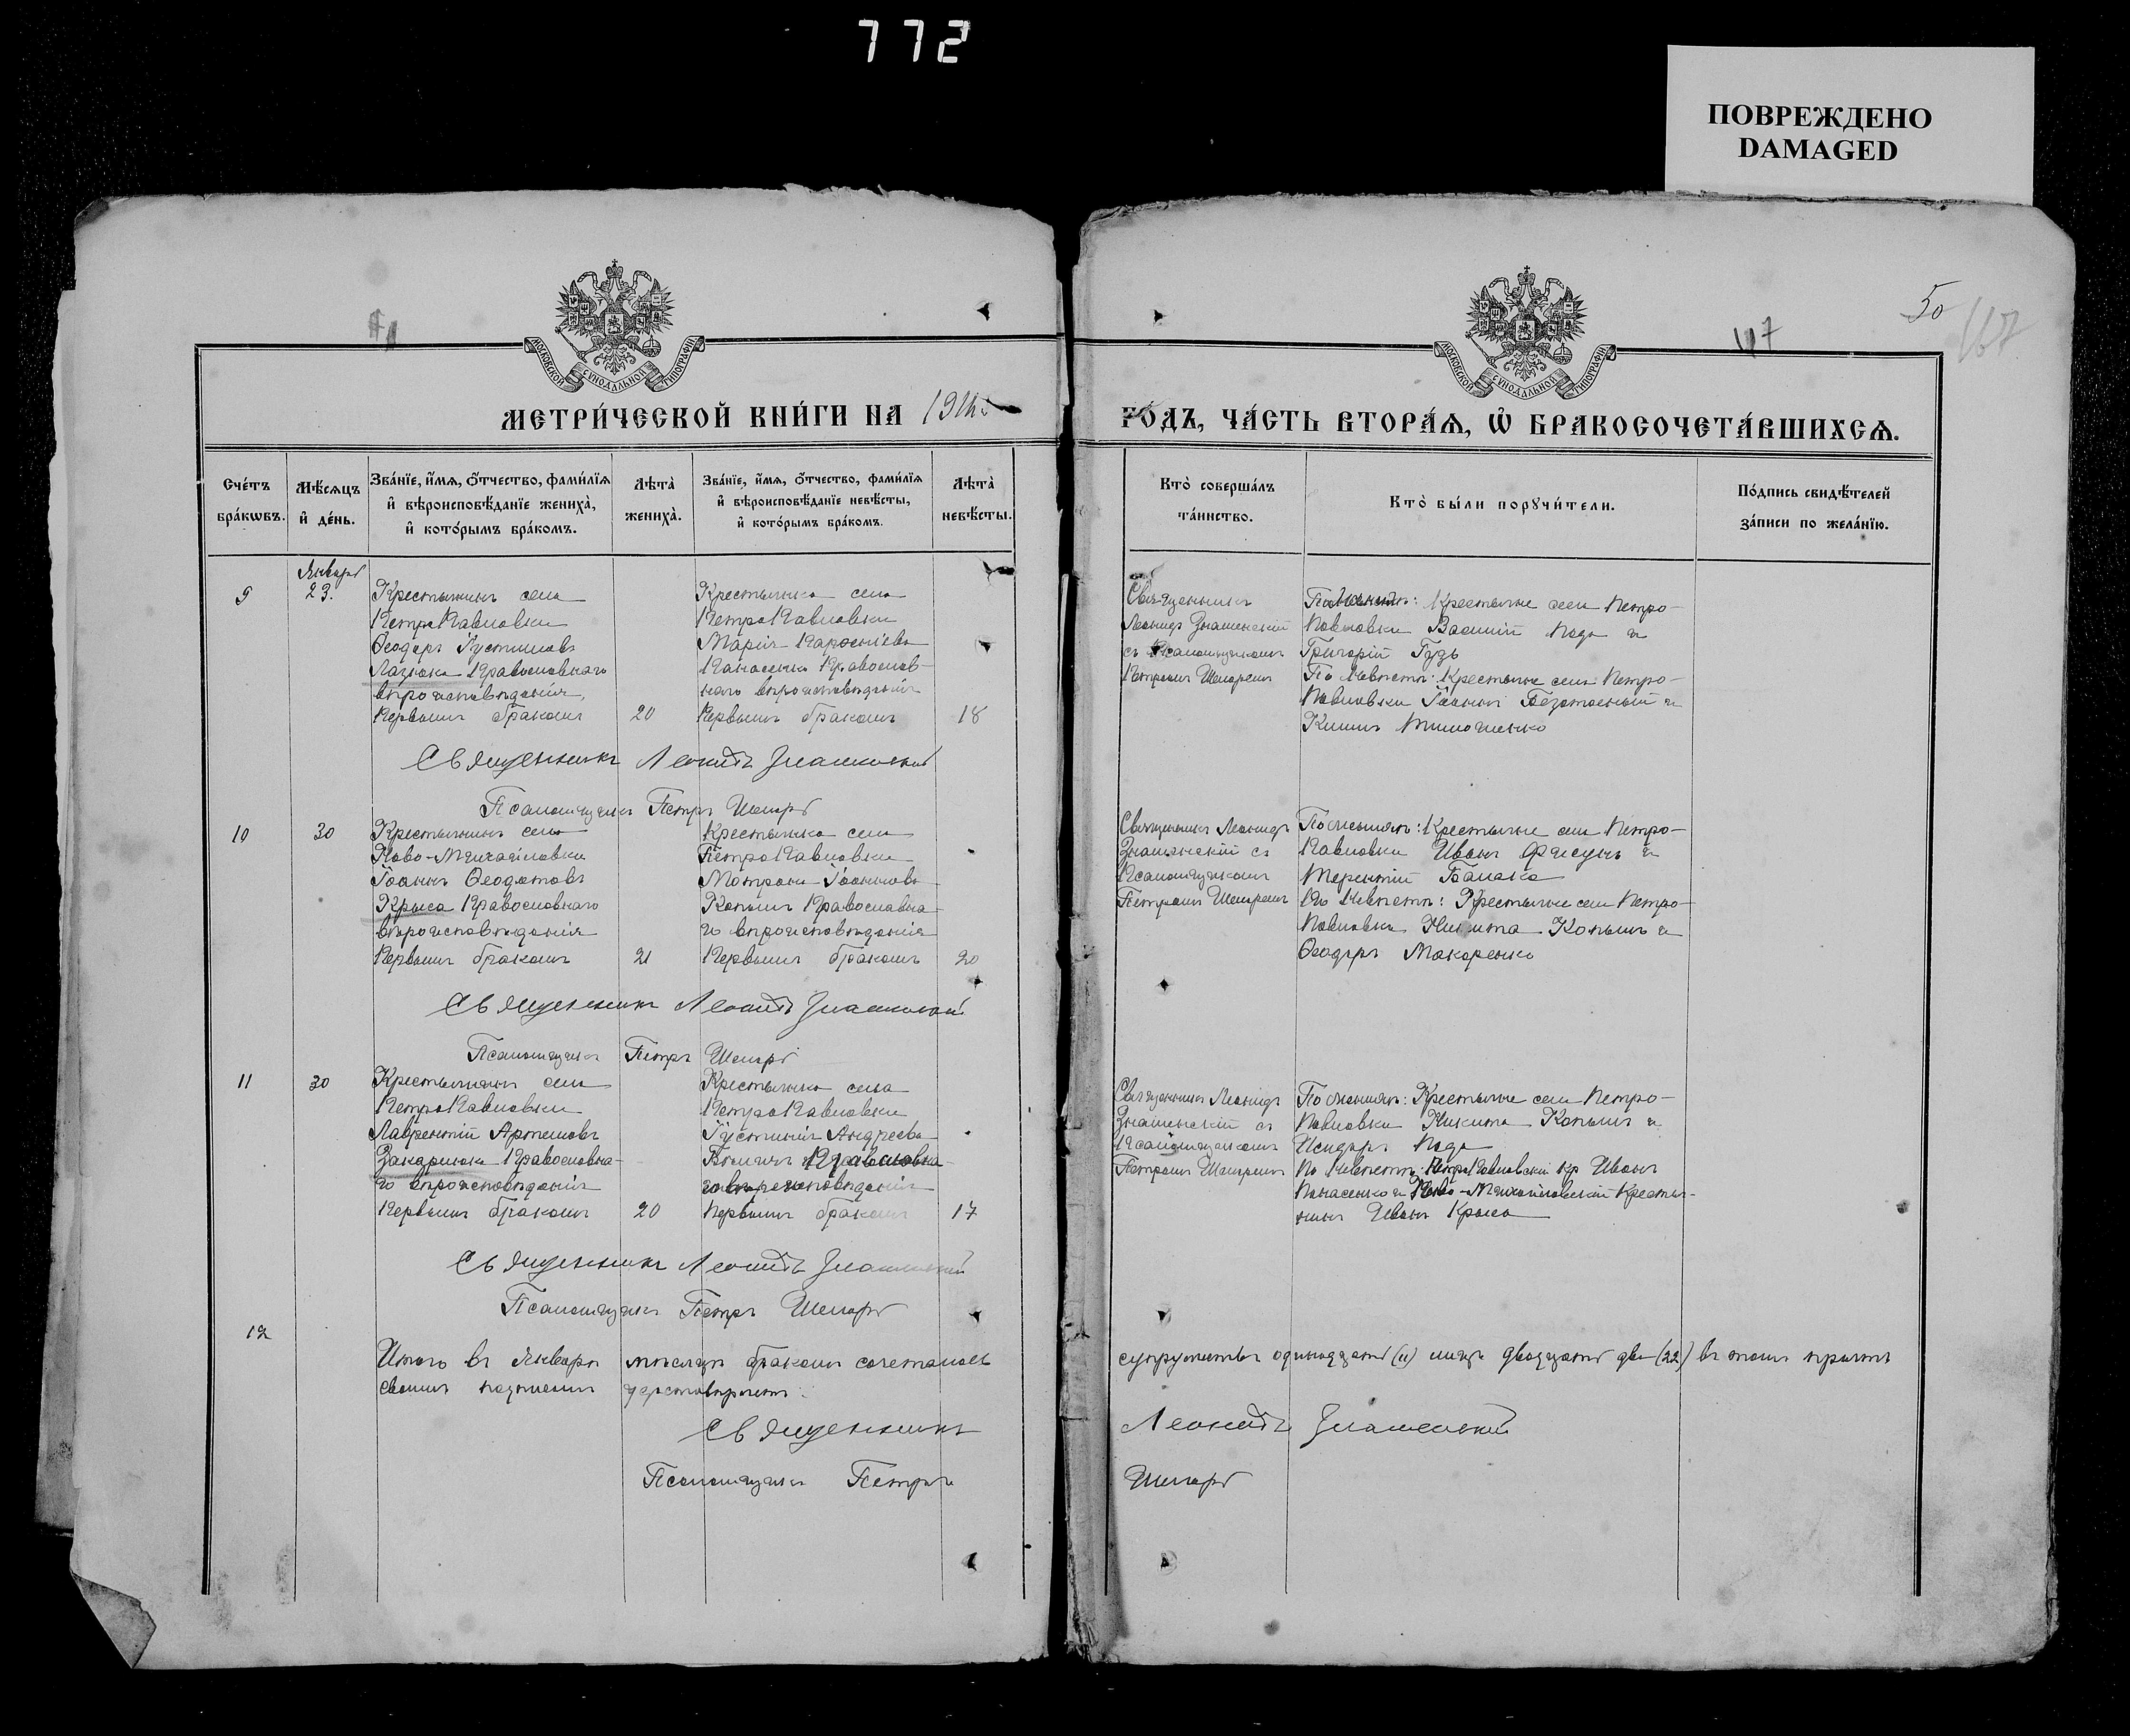 772
ПОВРЕЖДЕНО
DAMAGED
50
167
МОСКОВСКОЙ СУНОДАЛЬНОЙ ТИПОГРАФІИ
МОСКОВСКОЙ СУНОДАЛЬНОЙ ТИПОГРАФІИ
МЕТРИ́ЧЕСКОЙ КНИ́ГИ НА
ГО́ДЪ, ЧА́СТЬ ВТОРА́Ѧ, Ѽ БРАКОСОЧЕТА́ВШИХСѦ.
Сче́тъ бра́кѡвъ.
Мѣ́сѧцъ и҆ де́нь.
Зва́нїе, и҆́мѧ, ѻ҆́тчество, фами́лїѧ
и҆ вѣроисповѣ́данїе жениха̀,
и҆ кото́рымъ бра́комъ.
Лѣта̀ жениха̀.
Зва́нїе, и҆́мѧ, ѻ҆́тчество, фами́лїѧ
и҆ вѣроисповѣ́данїе невѣ́сты,
и҆ кото́рымъ бра́комъ.
Лѣта̀ невѣ́сты.
Кто̀ соверша́лъ та́инство.
Кто̀ бы́ли порꙋчи́тели.
По́дпись свидѣ́телей за́писи по жела́нїю.
Январь
9
23.
Крестьянинъ села
ПетроПавловки
Ѳеодоръ Іустиновъ
Лазюка Православнаго
вѣроисповѣданія,
Первымъ бракомъ
20
Крестьянка села
ПетроПавловки
Марія
Панасенко Православ-
наго вѣроисповѣданія
Первымъ бракомъ
18
Священникъ
Леонидъ Знаменскій
съ Псаломщикомъ
Петромъ
Крестьяне села Петро-
Павловки Василій и
Григорій Гузь
По Невѣстѣ: Крестьяне села Петро-
Павловки Іоаннъ и
Климъ Тимошенко
Священникъ Леонидъ Знаменскій
Псаломщикъ Петръ
10
30
Крестьянинъ села
Ново-Михайловки
Іоаннъ Ѳеодотовъ
Крыса Православнаго
вѣроисповѣданія
Первымъ бракомъ
21
Крестьянка села
ПетроПавловки
Мотрона Іоаннова
Копылъ Православна-
го вѣроисповѣданія
Первымъ бракомъ
20
Священникъ Леонидъ
Знаменскій съ
Псаломщикомъ
Петромъ
По Женихѣ: Крестьяне села Петро-
Павловки Иванъ Фисунъ и
Терентій
По Невѣстѣ: Крестьяне села Петро-
Павловки Никита Копылъ и
Ѳеодоръ Макаренко
Священникъ Леонидъ Знаменскій
Псаломщикъ Петръ
11
30
Крестьянинъ села
ПетроПавловки
Лаврентій Артемовъ
Захарюка Православна-
го вѣроисповѣданія
Первымъ бракомъ
20
Крестьянка села
ПетроПавловки
Іустинія Андреева
Православна-
го вѣроисповѣданія
Первымъ бракомъ
17
Священникъ Леонидъ
Знаменскій съ
Псаломщикомъ
Петромъ
По Женихѣ: Крестьяне села Петро-
Павловки Никита Копылъ и
Исидоръ
По Невѣстѣ: ПетроПавловскій кр. Иванъ
Панасенко и Ново-Михайловскій Крестья-
нинъ Иванъ Крыса
Священникъ Леонидъ Знаменскій
Псаломщикъ Петръ
12
Итого въ Январѣ мѣсяцѣ бракомъ сочеталось супружествъ одинадцать (11) лицъ двадцать два (22) въ томъ причтъ
своимъ подписомъ удостовѣряетъ:
Священникъ Леонидъ Знаменскій
Псаломщикъ Петръ